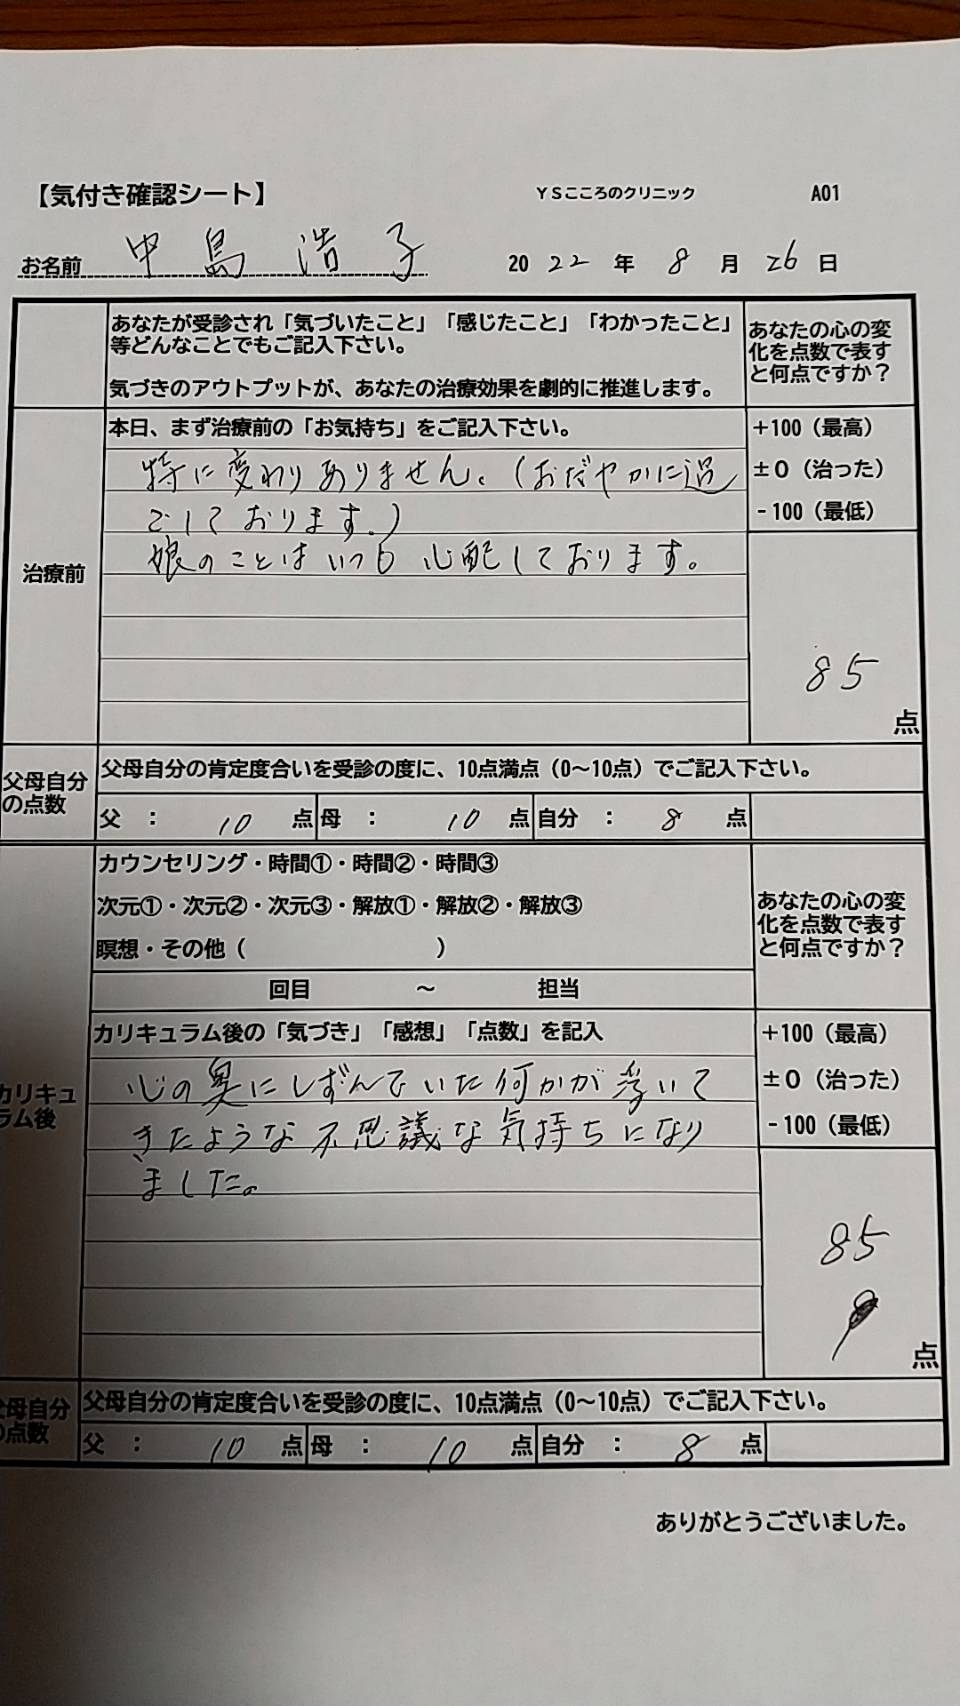 【気付き確認シート】 YSこころのクリニック A01
お名前 中島 浩子 2022年 8月 26日
あなたが受診され「気づいたこと」「感じたこと」「わかったこと」
等どんなことでもご記入下さい。
気づきのアウトプットが、あなたの治療効果を劇的に推進します。
あなたの心の変
化を点数で表す
と何点ですか？
治療前
本日、まず治療前の「お気持ち」をご記入下さい。
特に変わりありません。（おだやかに過
ごしております。）
娘のことはいつも心配しております。
＋100（最高）
±0（治った）
－100（最低）
85
点
父母自分
の点数
父母自分の肯定度合いを受診の度に、10点満点（0～10点）でご記入下さい。
父 ： 10 点 母 ： 10 点 自分 ： 8 点
カウンセリング・時間①・時間②・時間③
次元①・次元②・次元③・解放①・解放②・解放③
瞑想・その他（ ）
回目 ～ 担当
あなたの心の変
化を点数で表す
と何点ですか？
カリキュ
ラム後
カリキュラム後の「気づき」「感想」「点数」を記入
心の奥にしずんでいた何かが浮いて
きたような不思議な気持ちになり
ました。
＋100（最高）
±0（治った）
－100（最低）
85
点
父母自分
の点数
父母自分の肯定度合いを受診の度に、10点満点（0～10点）でご記入下さい。
父 ： 10 点 母 ： 10 点 自分 ： 8 点
ありがとうございました。